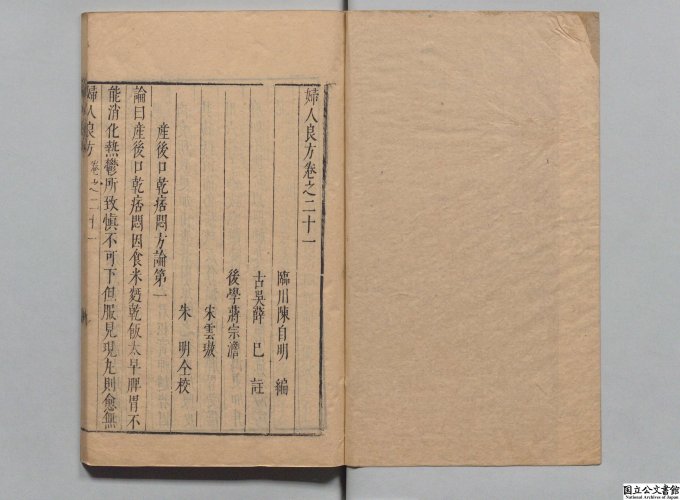 婦人良方卷之二十一
臨川陳自明 編
古吳薛 己 註
後學蔣宗澹
朱雲璈
朱 明仝校
產後口乾痞悶方論第一
論曰產後口乾痞悶因食米麪乾飯太早脾胃不
能消化熱鬱所致慎不可下但服見晛丸則愈無
婦人良方 卷之二十一
国立公文書館
National Archives of Japan